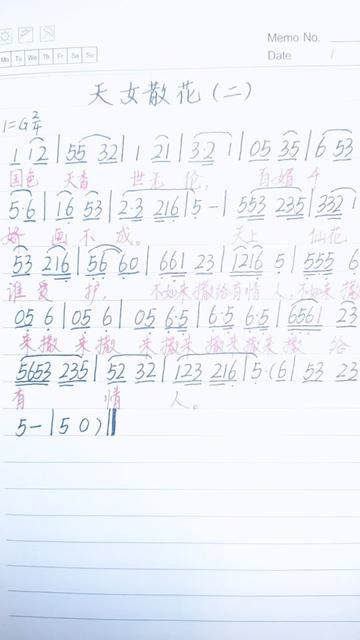 Memo No.
Mo Tu We Th Fr Sa Su
Date /
天女散花(二)
1=G 2/4
1 12 | 55 32 | 1 21 | 3·2 1 | 05 35 | 6 53
国色 天香 世无 伦, 百媚千
5·6 | 16 53 | 2·3 216 | 5 - | 553 235 | 332 1
娇 画不成。 天上 仙花
53 216 | 56 60 | 661 23 | 1216 5 | 555 6
谁爱 护, 不如来撒给有情人,不如来撒
05 6 | 05 6 | 05 6·5 | 6·5 6·5 | 6561 23
来撒 来撒 来撒来撒来撒来撒 给
5653 235 | 52 32 | 123 216 | 5·(6 | 53 23
有 情 人。
5 - | 5 0) ‖